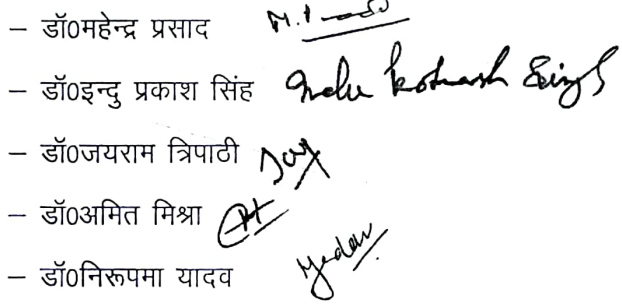 – डॉ0महेन्द्र प्रसाद
– डॉ0इन्दु प्रकाश सिंह Indu Prakash Singh
– डॉ0जयराम त्रिपाठी Jay
– डॉ0अमित मिश्रा
– डॉ0निरूपमा यादव Yadav